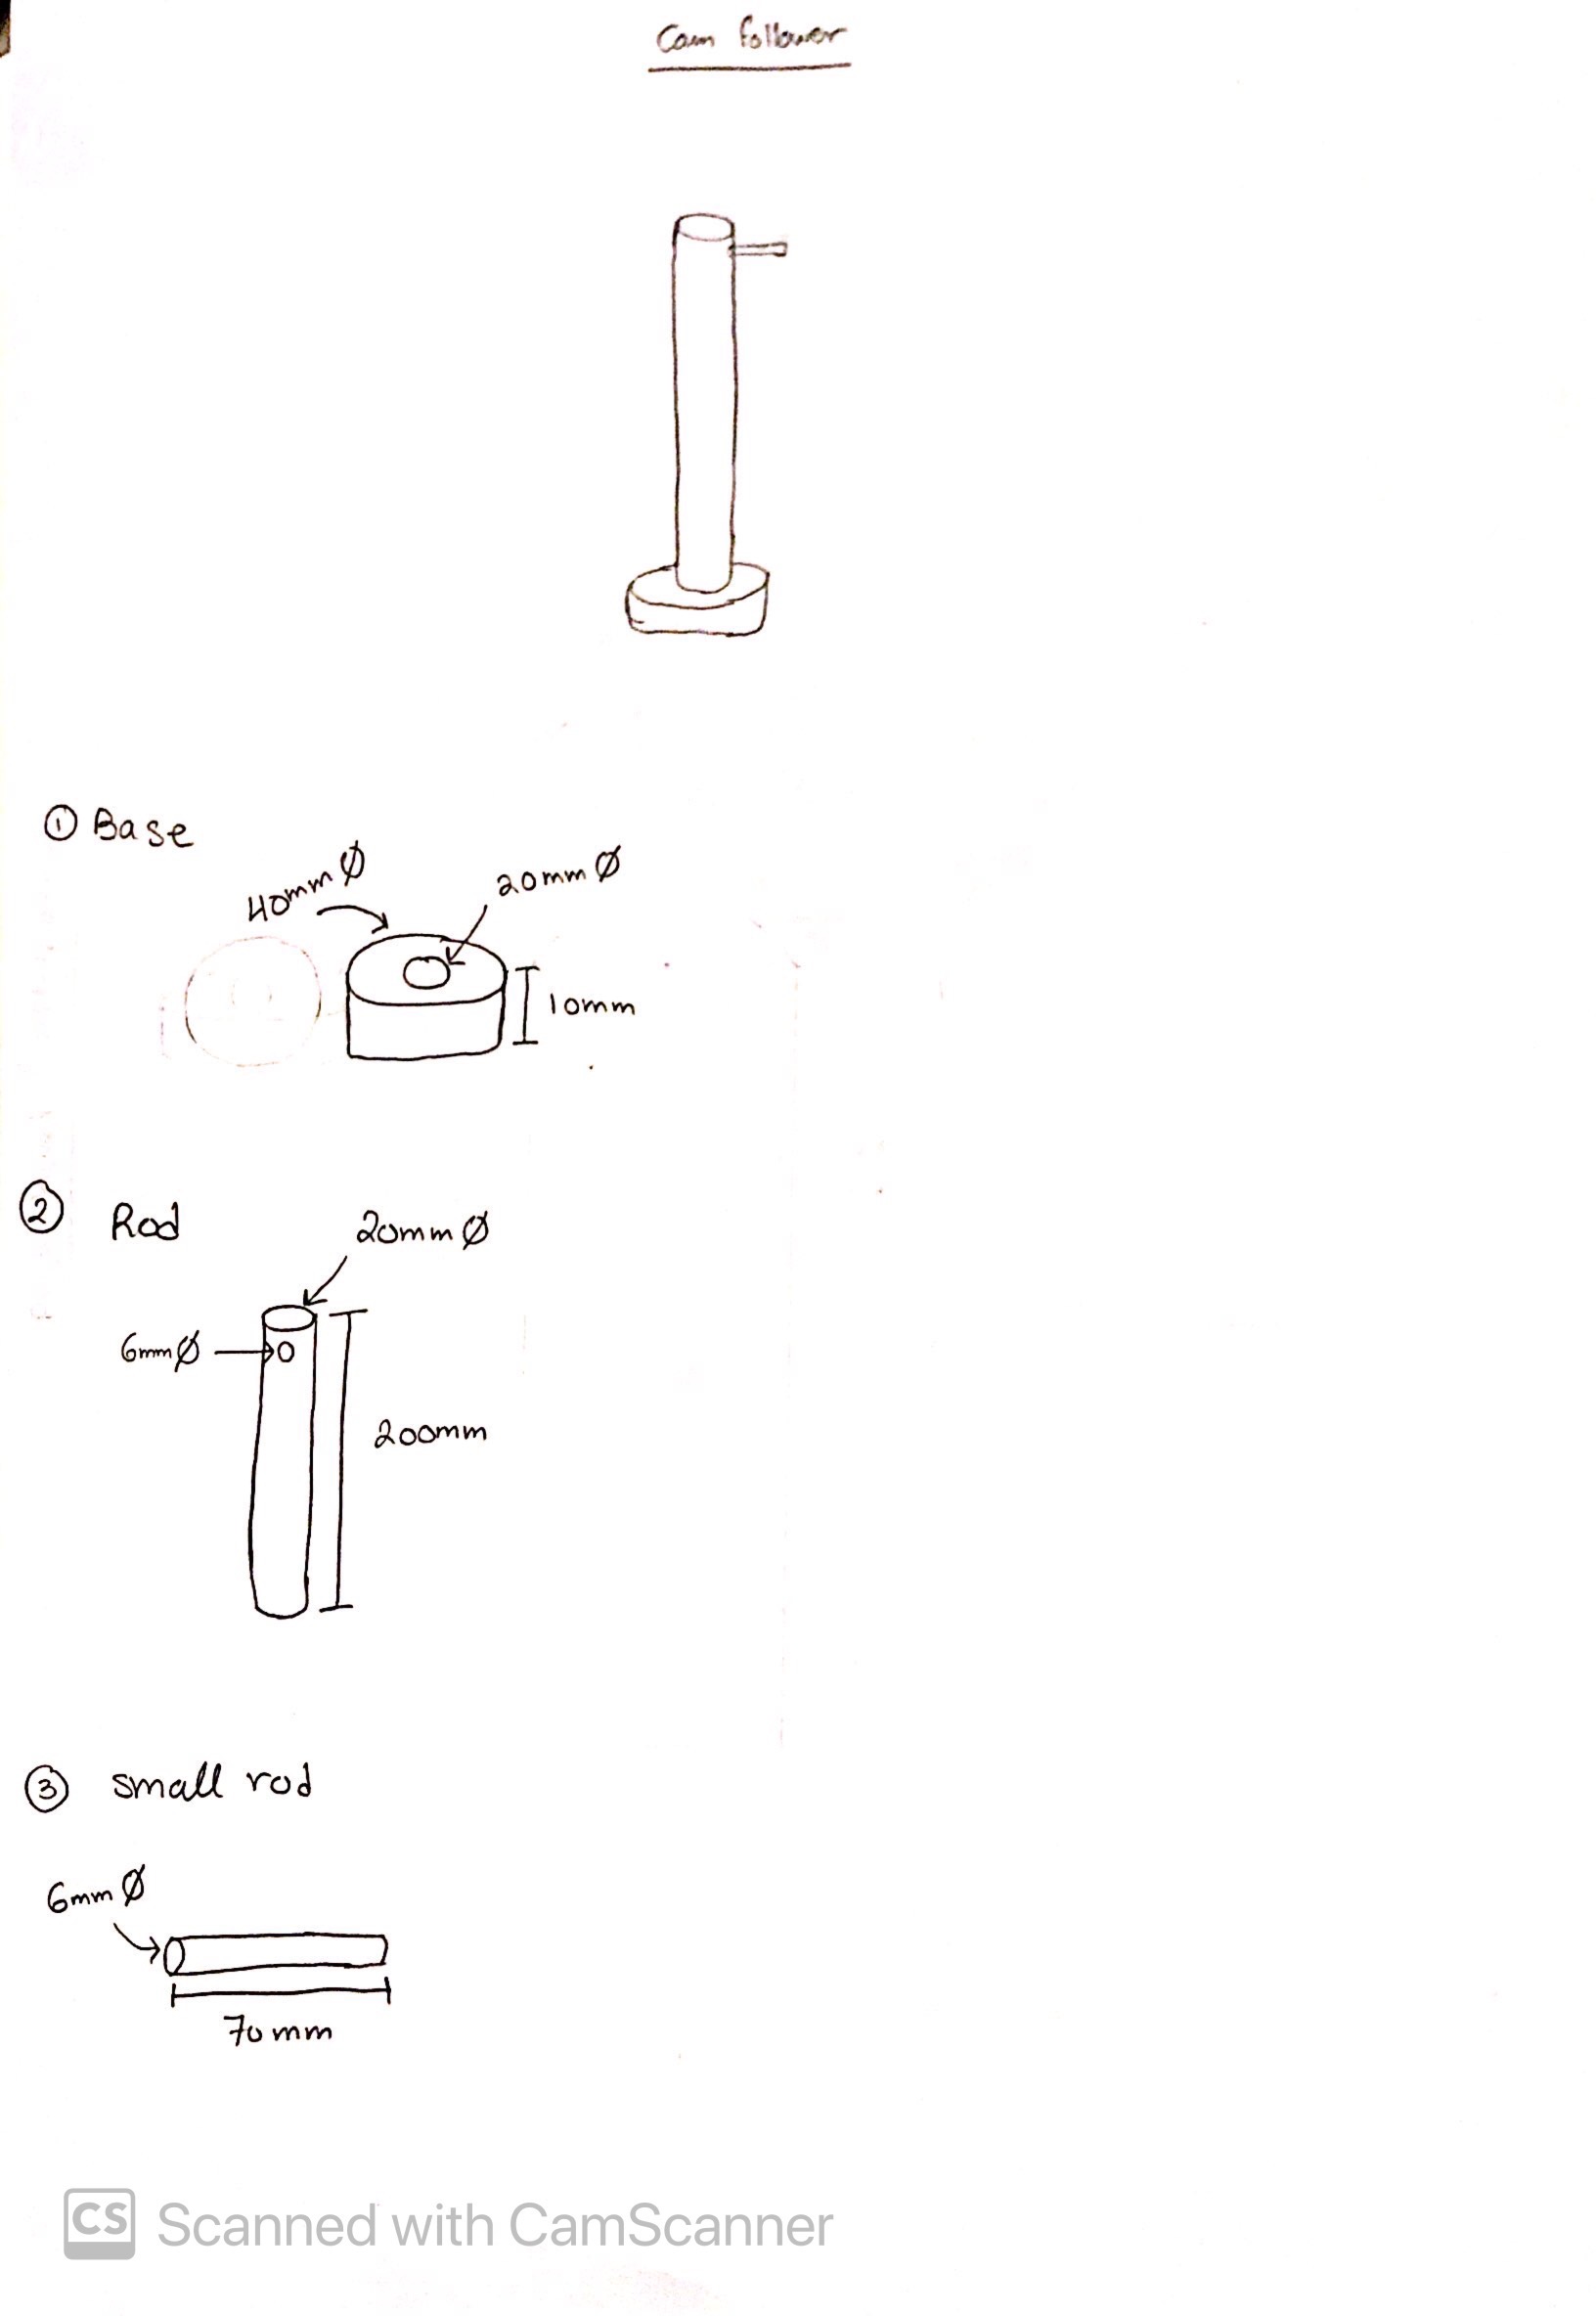 Cam follower
① Base
40mm Ø
20mm Ø
10mm
② Rod
20mm Ø
6mm Ø
200mm
③ small rod
6mm Ø
70mm
CS Scanned with CamScanner